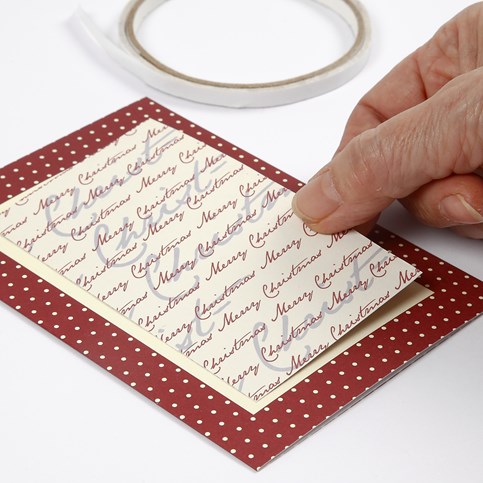 Merry Christmas Merry
Christmas Merry Christmas
Merry Christmas Merry
Christmas Merry Christmas
Merry Christmas Merry
Christmas Merry Christmas
Merry Christmas Merry
Christmas Merry Christmas
Merry Christmas
Christ
Christ
Christ
Christ